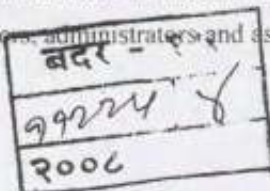 administrators and as
बदर - १२
११२२५ ४
२००८